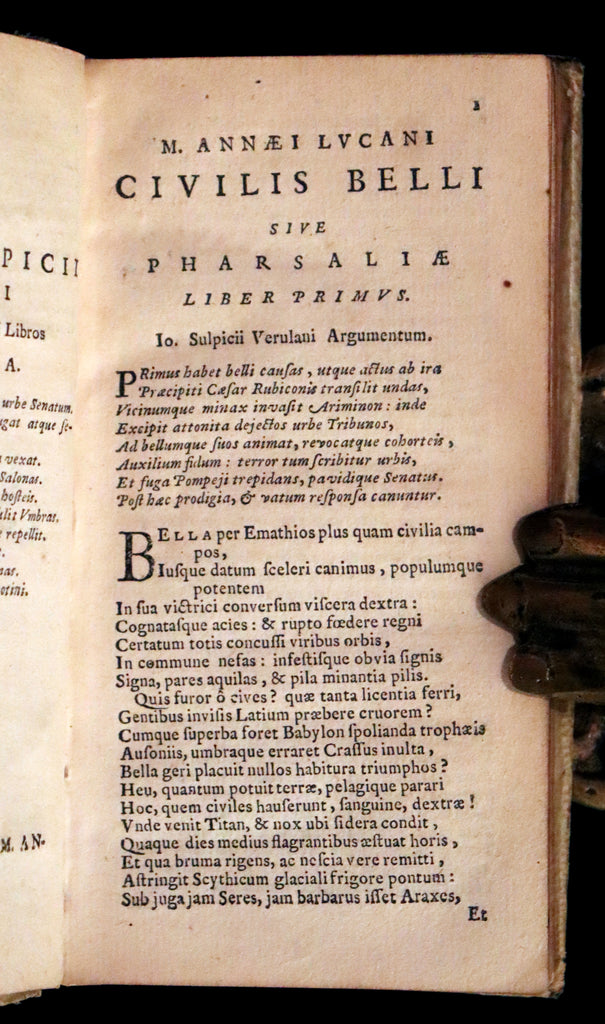 PICII
I
Libros
A.
urbe Senatum,
gat atque ſe-
vexat.
Salonas.
hoſteis.
ſilit Vmbras.
repellit.
M. AN-
1
M. ANNÆI LVCANI
CIVILIS BELLI
SIVE
PHARSALIÆ
LIBER PRIMVS.
Io. Sulpicii Verulani Argumentum.
PRimus habet belli cauſas, utque actus ab ira
Præcipiti Cæſar Rubiconis tranſilit undas,
Vicinumque minax invaſit Ariminon: inde
Excipit attonita dejectos urbe Tribunos,
Ad bellumque ſuos animat, revocatque cohorteis,
Auxilium fidum: terror tum ſcribitur urbis,
Et fuga Pompeji trepidans, pavidique Senatus.
Poſt hæc prodigia, & vatum reſponſa canuntur.
BELLA per Emathios plus quam civilia cam-
pos,
Iuſque datum ſceleri canimus, populumque
potentem
In ſua victrici converſum viſcera dextra:
Cognataſque acies: & rupto fœdere regni
Certatum totis concuſſi viribus orbis,
In commune nefas: infeſtiſque obvia ſignis
Signa, pares aquilas, & pila minantia pilis.
Quis furor ô cives? quæ tanta licentia ferri,
Gentibus inviſis Latium præbere cruorem?
Cumque ſuperba foret Babylon ſpolianda trophæis
Auſoniis, umbraque erraret Craſſus inulta,
Bella geri placuit nullos habitura triumphos?
Heu, quantum potuit terræ, pelagique parari
Hoc, quem civiles hauſerunt, ſanguine, dextræ!
Vnde venit Titan, & nox ubi ſidera condit,
Quaque dies medius flagrantibus æſtuat horis,
Et qua bruma rigens, ac neſcia vere remitti,
Aſtringit Scythicum glaciali frigore pontum:
Sub juga jam Seres, jam barbarus iſſet Araxes,
Et